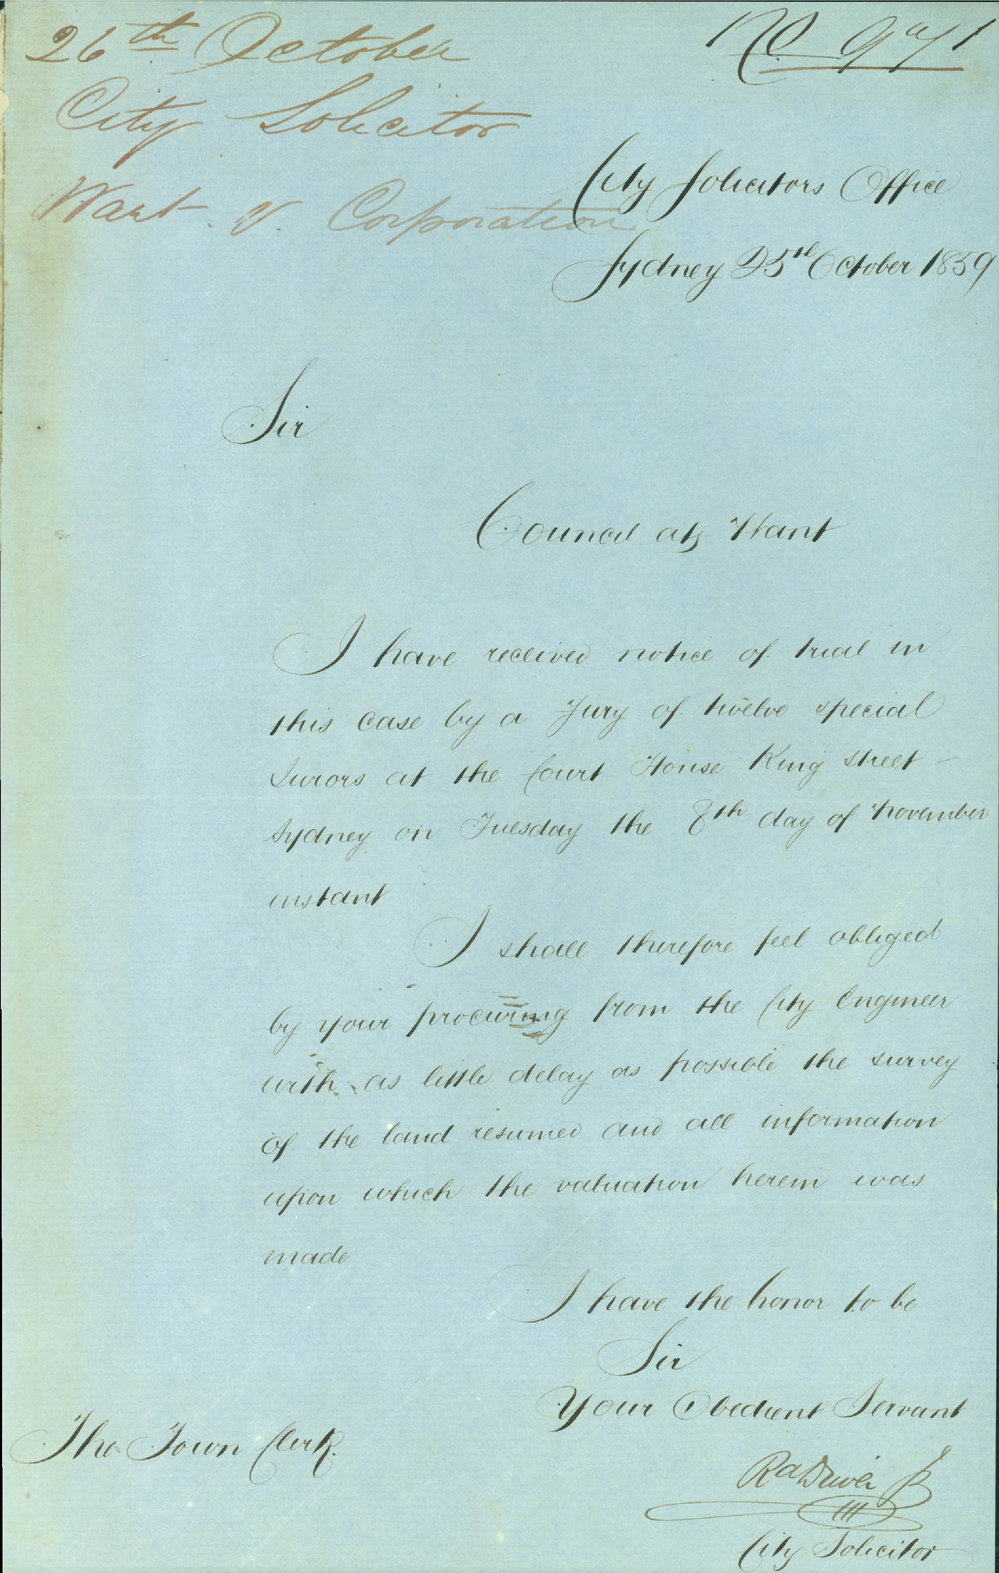 26th October
City Solicitor
Want v. Corporation
No 971
City Solicitors Office
Sydney 25th October 1859
Sir
Council ats Want
I have received notice of trial in
this case by a Jury of twelve special
Jurors at the Court House King street -
Sydney on Tuesday the 8th day of November
instant
I shall therefore feel obliged
by your procuring from the City Engineer
with as little delay as possible the survey
of the land resumed and all information
upon which the valuation herein was
made
I have the honor to be
Sir
Your Obedient Servant
Rd Driver Jr
City Solicitor
The Town Clerk.